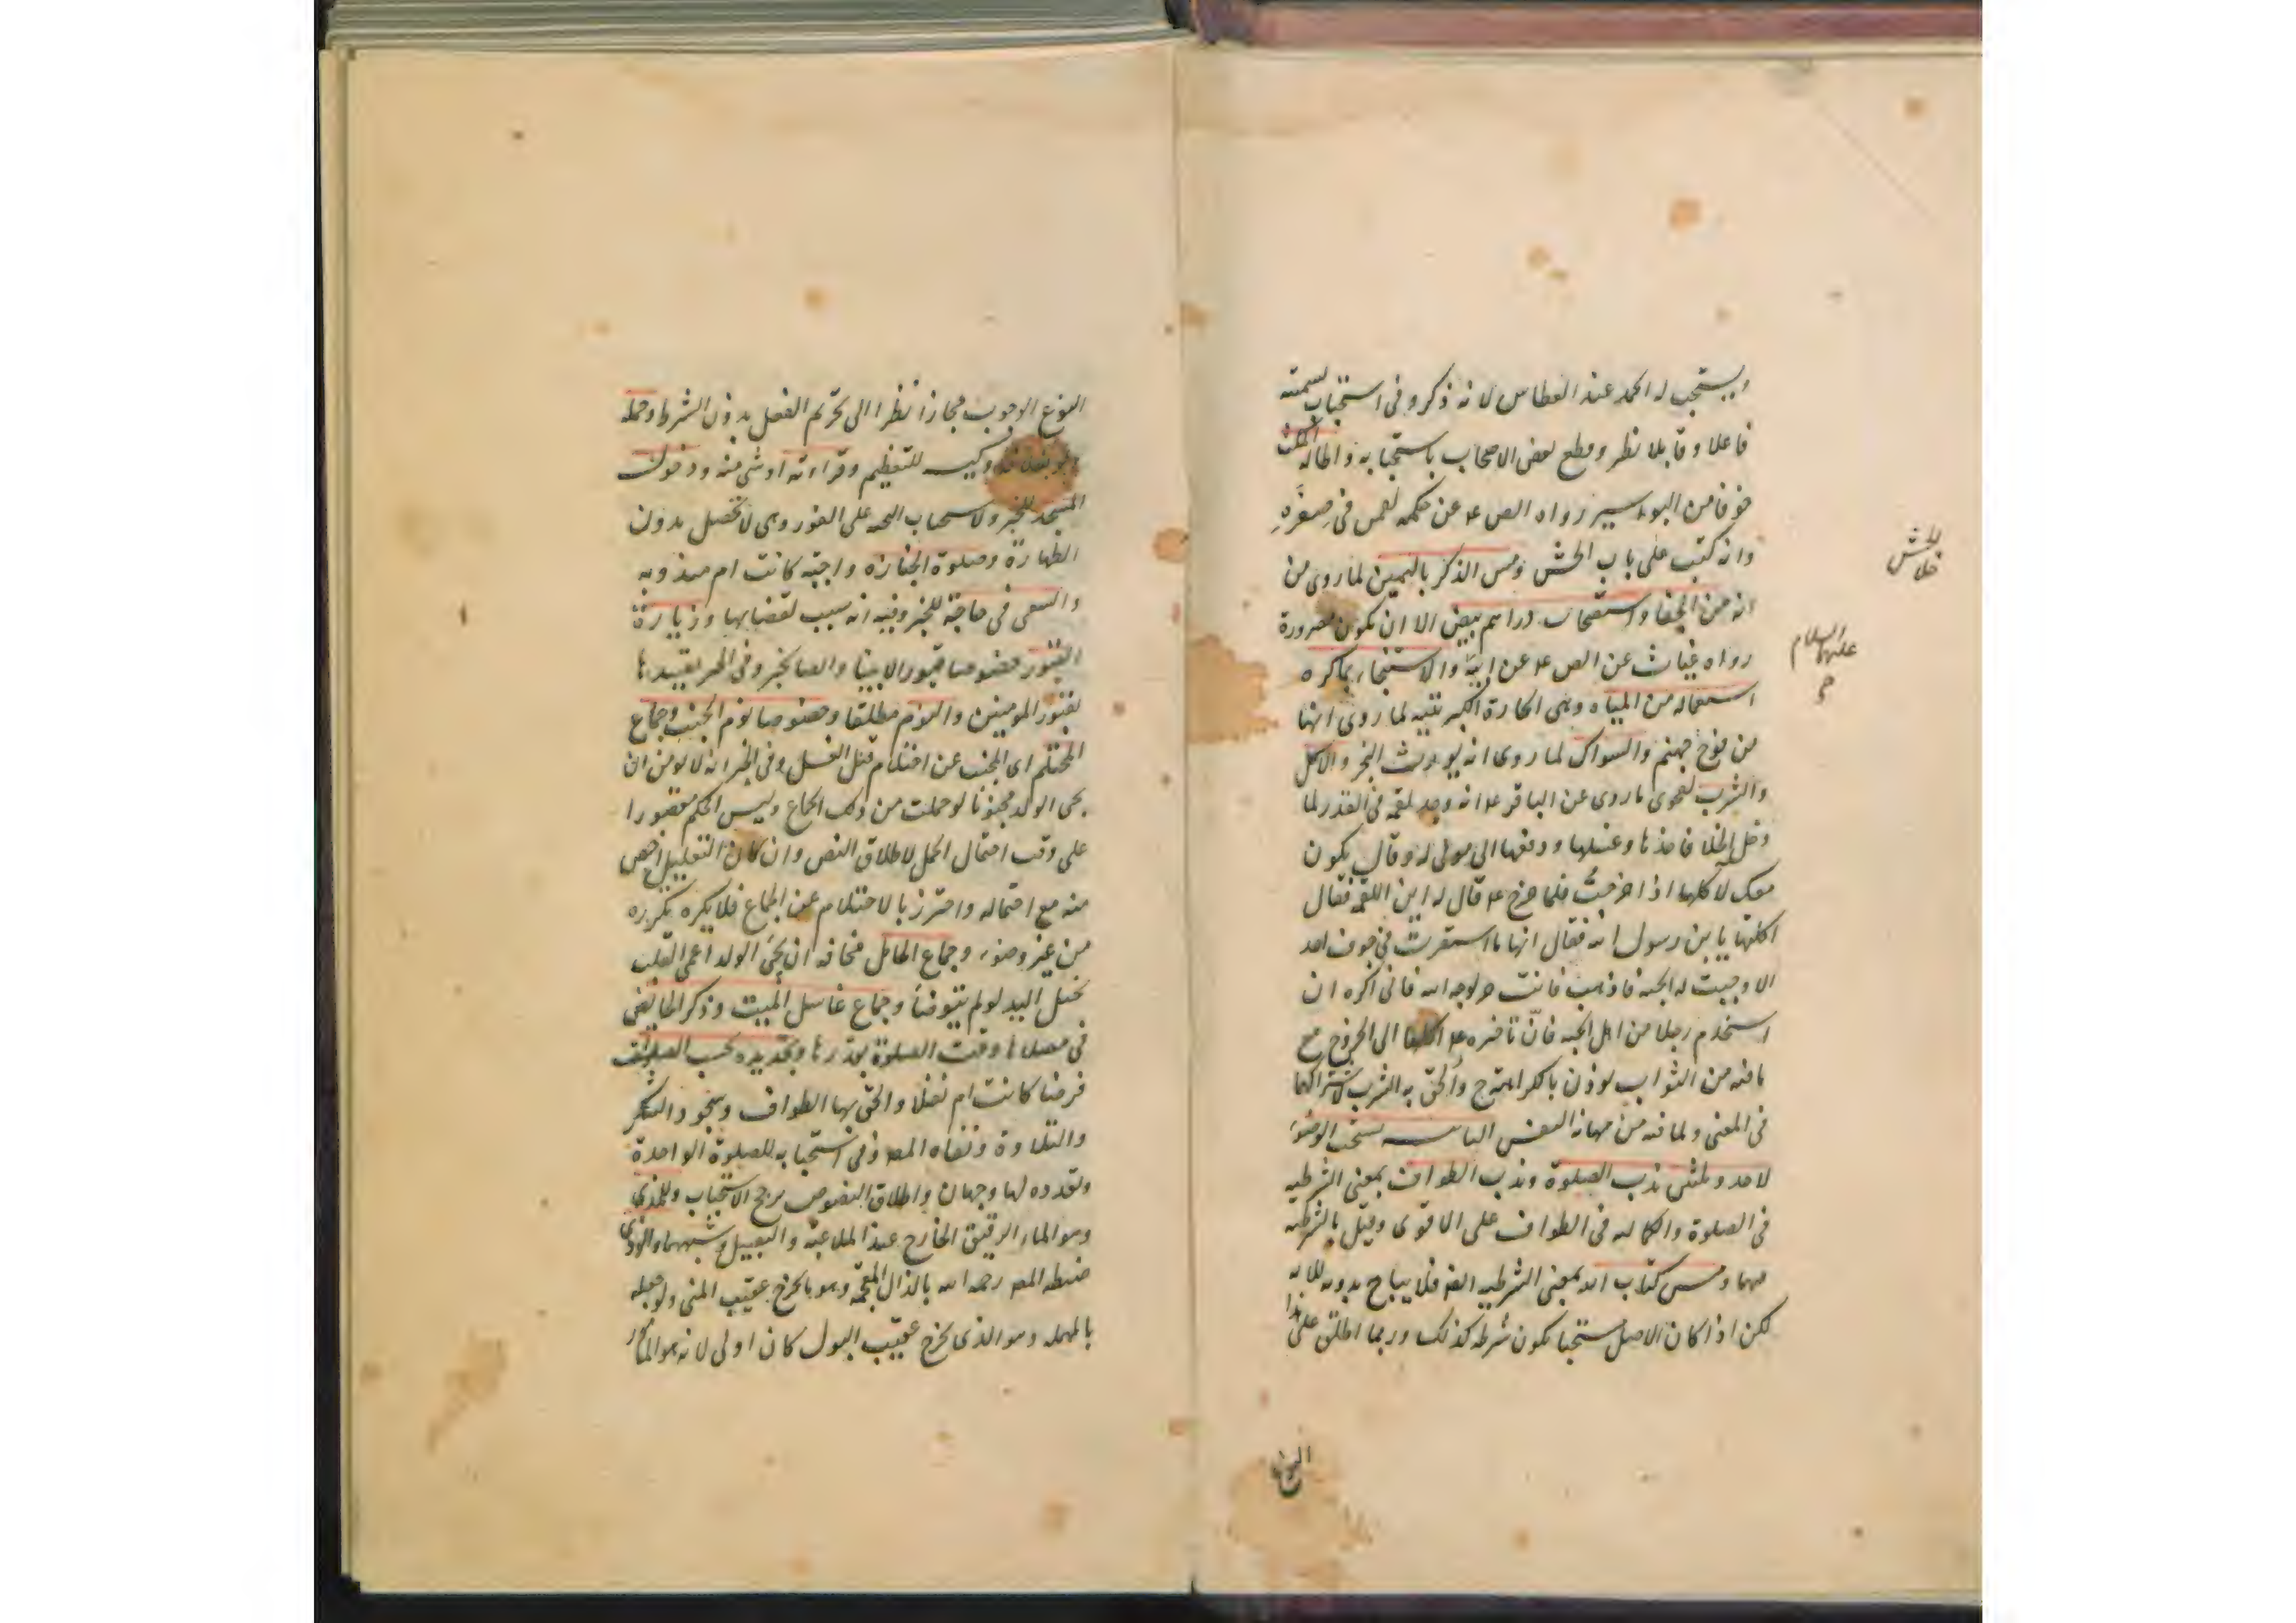 ويستحب له الحمد عند العطاس لانه ذكر وفى استحباب تسميته
فاعلا وقابلا نظر وقطع بعض الاصحاب باستحبابه واطالة المكث
خوفا من البواسير رواه الص ع عن حكمه لقمن فى صغره
وانه كتب على باب الحش ومس الذكر باليمين لما روى من
انه من الجفا واستصحاب دراهم بيض الا ان تكون مصرورة
رواه غياث عن الص ع عن ابيه والاستنجاء بما كره
استعماله من المياه وهى الحارة الكبريتيه لما روى انها
من فوح جهنم والسواك لما روى انه يورث البخر والاكل
والشرب لفحوى ما روى عن الباقر ع انه وجد لقمة فى القذر لما
دخل الخلا فاخذها وغسلها ودفعها الى مولى له وقال يكون
معك لآكلها اذا خرجت فلما خرج ع قال له اين اللقمه فقال
اكلتها يا بن رسول الله فقال انها ما استقرت فى جوف احد
الا وجبت له الجنه فاذهب فانت حر لوجه الله فانى اكره ان
استخدم رجلا من اهل الجنه فان تأخره ع اكلها الى الخروج مع
ما فيه من الثواب يوذن بالكراهة وألحق به الشرب لاشتراكهما
فى المعنى ولما فيه من مهانة النفس السادسه يستحب الوضوء
لاحد وثلثين ندب الصلوة وندب الطواف بمعنى الشرطيه
فى الصلوة والكماليه فى الطواف على الاقوى وقيل بالشرطيه
فيهما ومس كتاب الله بمعنى الشرطيه فلا يباح بدونه
لكن اذا كان الاصل مستحبا يكون شرطه كذلك وربما اطلق على هذا
النوع
للحش
خلاش
عليهما السلام
النوع الوجوب مجازا نظرا الى تحريم الفعل بدون الشرط وحمله
للتعظيم وقراءته او شى منه ودخول
المسجد للخبر ولاستحباب التحيه على الفور وهى لا تحصل بدون
الطهارة وصلوة الجنازه واجبة كانت ام مندوبه
والسعى فى حاجة للخبر وفيه انه سبب لقضايها وزيارة
القبور خصوصا قبور الانبيا والصا لخبر وفى الخبر تقييدها
بقبور المومنين والنوم مطلقا وخصوصا نوم الجنب وجماع
المحتلم اى المجنب عن احتلام قبل الغسل وفى الخبر انه لا يومن ان
يجى الولد مجنونا لو حملت من ذلك الجماع وليس الحكم مقصورا
على وقت احتمال الحمل لاطلاق النص وان كان التعليل اخص
منه مع احتماله واحترز بالاحتلام عن الجماع فلا يكره تكرره
من غير وضوء وجماع الحامل مخافة ان يجى الولد اعمى القلب
بخيل اليد لو لم يتوضأ وجماع غاسل الميت وذكر الحائض
فى مصلاها وقت الصلوة بقدرها وتجديده بحسب الصلوات
فرضا كانت ام نفلا والحق بها الطواف وسجود الشكر
والتلاوة ونفاه المص وفى استحبابه للصلوة الواحدة
وتعدده لها وجهان واطلاق النصوص يرجح الاستحباب وللمذى
وهو الماء الرقيق الخارج عند الملاعبة والتقبيل وشبههما والوذى
ضبطه المص رحمه الله بالذال المعجمة وهو ما يخرج عقيب المنى ولو جعله
بالمهمله وهو الذى يخرج عقيب البول كان اولى لانه هو المذكور